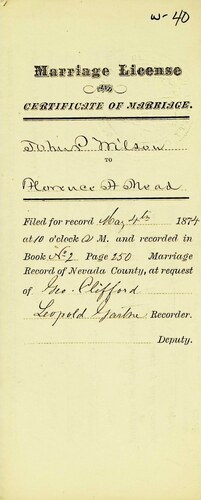 W-40
Marriage License
AND
CERTIFICATE OF MARRIAGE.
John P. Wilson
TO
Florence A Mead
Filed for record May 4th 1874
at 10 o'clock A M. and recorded in
Book No 2 Page 250 Marriage
Record of Nevada County, at request
of Geo. Clifford
Leopold Garthe Recorder.
Deputy.